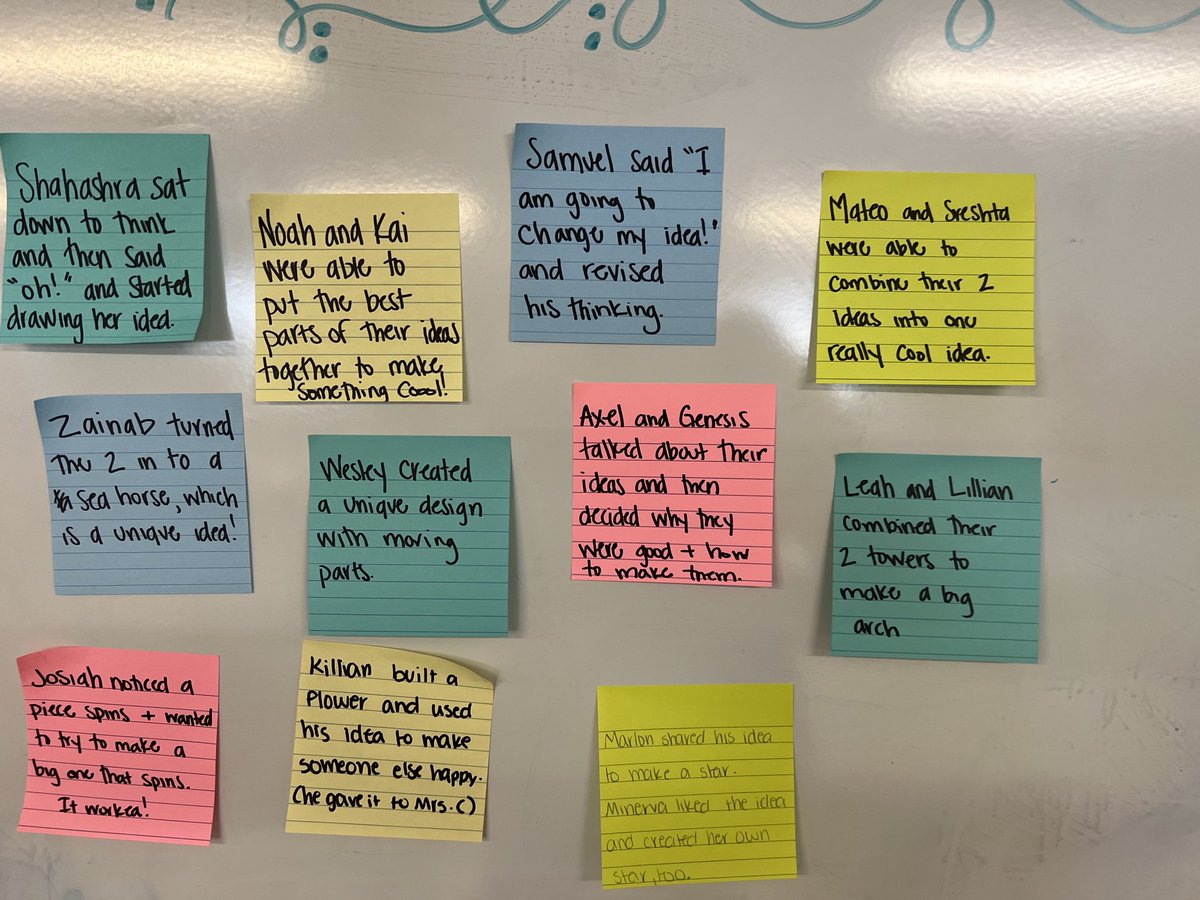 Shahashra sat
down to think
and then said
"oh!" and started
drawing her idea.
Noah and Kai
were able to
put the best
parts of their ideas
together to make
something Coool!
Samuel said "I
am going to
change my idea!"
and revised
his thinking.
Mateo and Sreshta
were able to
combine their 2
ideas into one
really cool idea.
Zainab turned
the 2 in to a
sea horse, which
is a unique idea!
Wesley created
a unique design
with moving
parts.
Axel and Genesis
talked about their
ideas and then
decided why they
were good + how
to make them.
Leah and Lillian
combined their
2 towers to
make a big
arch
Josiah noticed a
piece spins + wanted
to try to make a
big one that spins.
It worked!
Killian built a
flower and used
his idea to make
someone else happy.
(he gave it to Mrs. C)
Marlon shared his idea
to make a star.
Minerva liked the idea
and created her own
star, too.